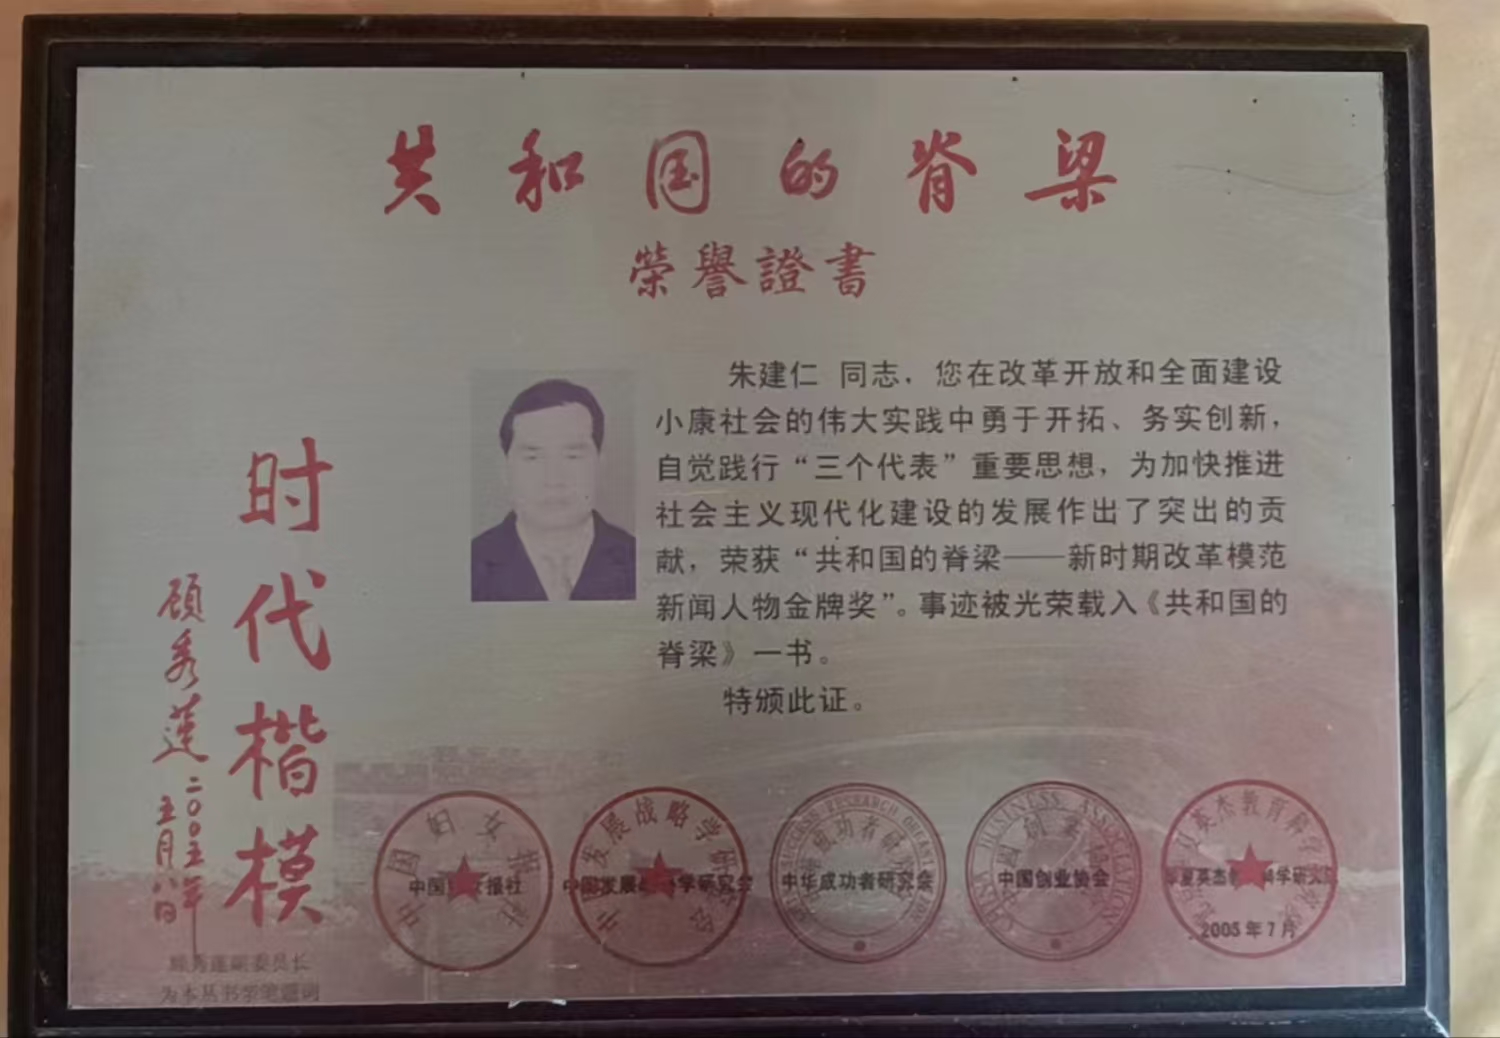 共和国的脊梁
榮譽證書
朱建仁 同志，您在改革开放和全面建设
小康社会的伟大实践中勇于开拓、务实创新，
自觉践行“三个代表”重要思想，为加快推进
社会主义现代化建设的发展作出了突出的贡
献，荣获“共和国的脊梁——新时期改革模范
新闻人物金牌奖”。事迹被光荣载入《共和国的
脊梁》一书。
特颁此证。
时代楷模
顾秀莲
二〇〇五年
五月八日
顾秀莲副委员长
为本丛书亲笔题词
中国妇女报社
中国妇女报社
中国发展战略学研究会
中国发展战略学研究会
中华成功者研究会
中国创业协会
CHINA BUSINESS ASSOCIATION
中国创业协会
2005年7月